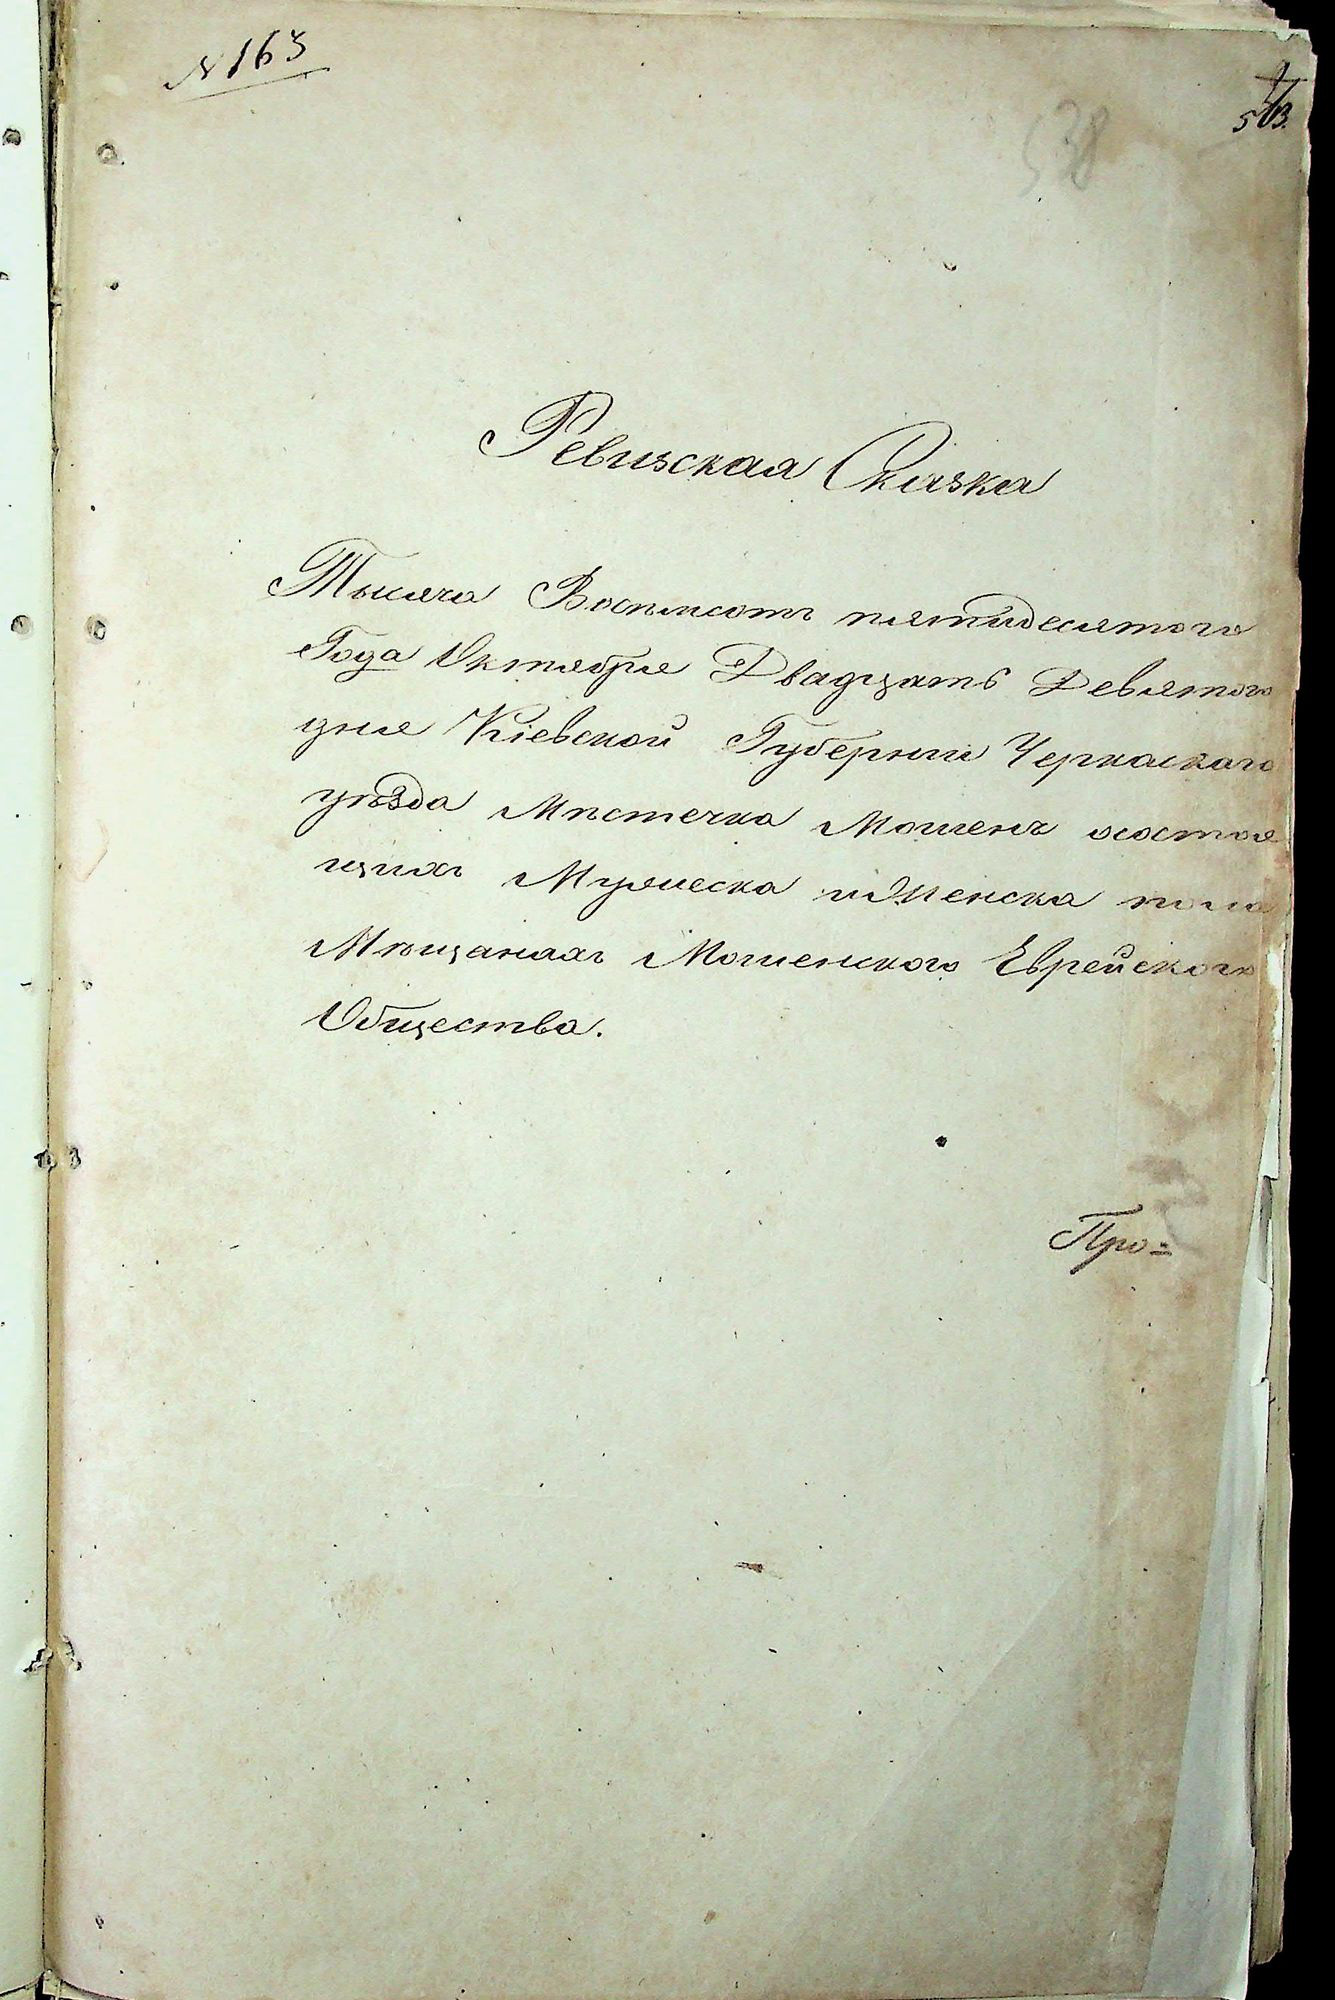 № 163
538
513.
Ревизская Сказка
Тысяча Восемсотъ пятидесятого
Года Октября Двадцать Девятого
дня Кіевской Губерніи Черкаского
уѣзда Мѣстечка Мошенъ осостоя
щихъ Мужеска и Женска пола
Мѣщанахъ Мошенского Еврейского
Общества.
Про=